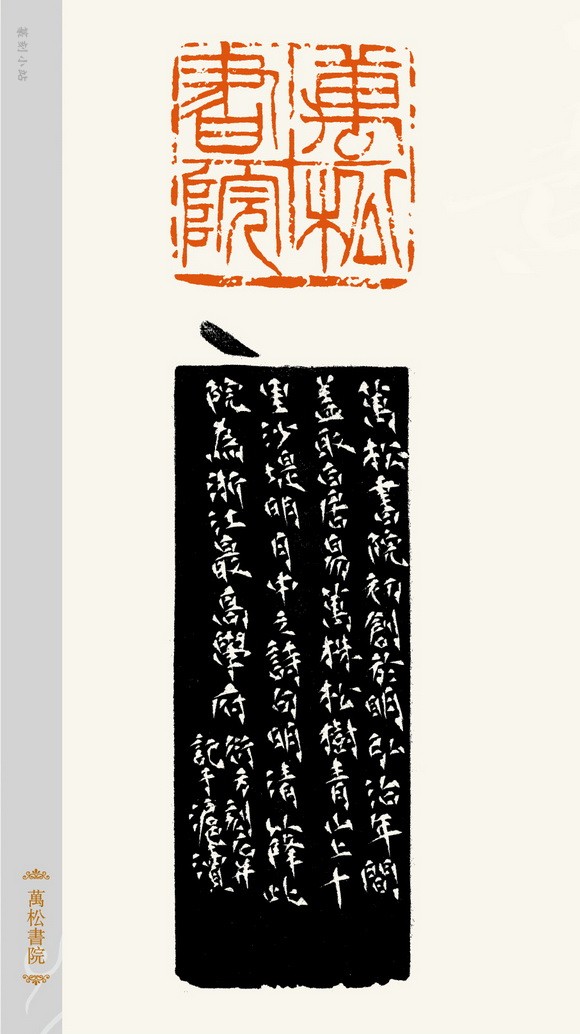 篆刻小站
萬松書院
萬松書院初創於明弘治年間
蓋取白居易萬株松樹青山上十
里沙堤明月中之詩句明清薛此
院為浙江最高學府
衍方刻石并
記于滬瀆
萬松書院